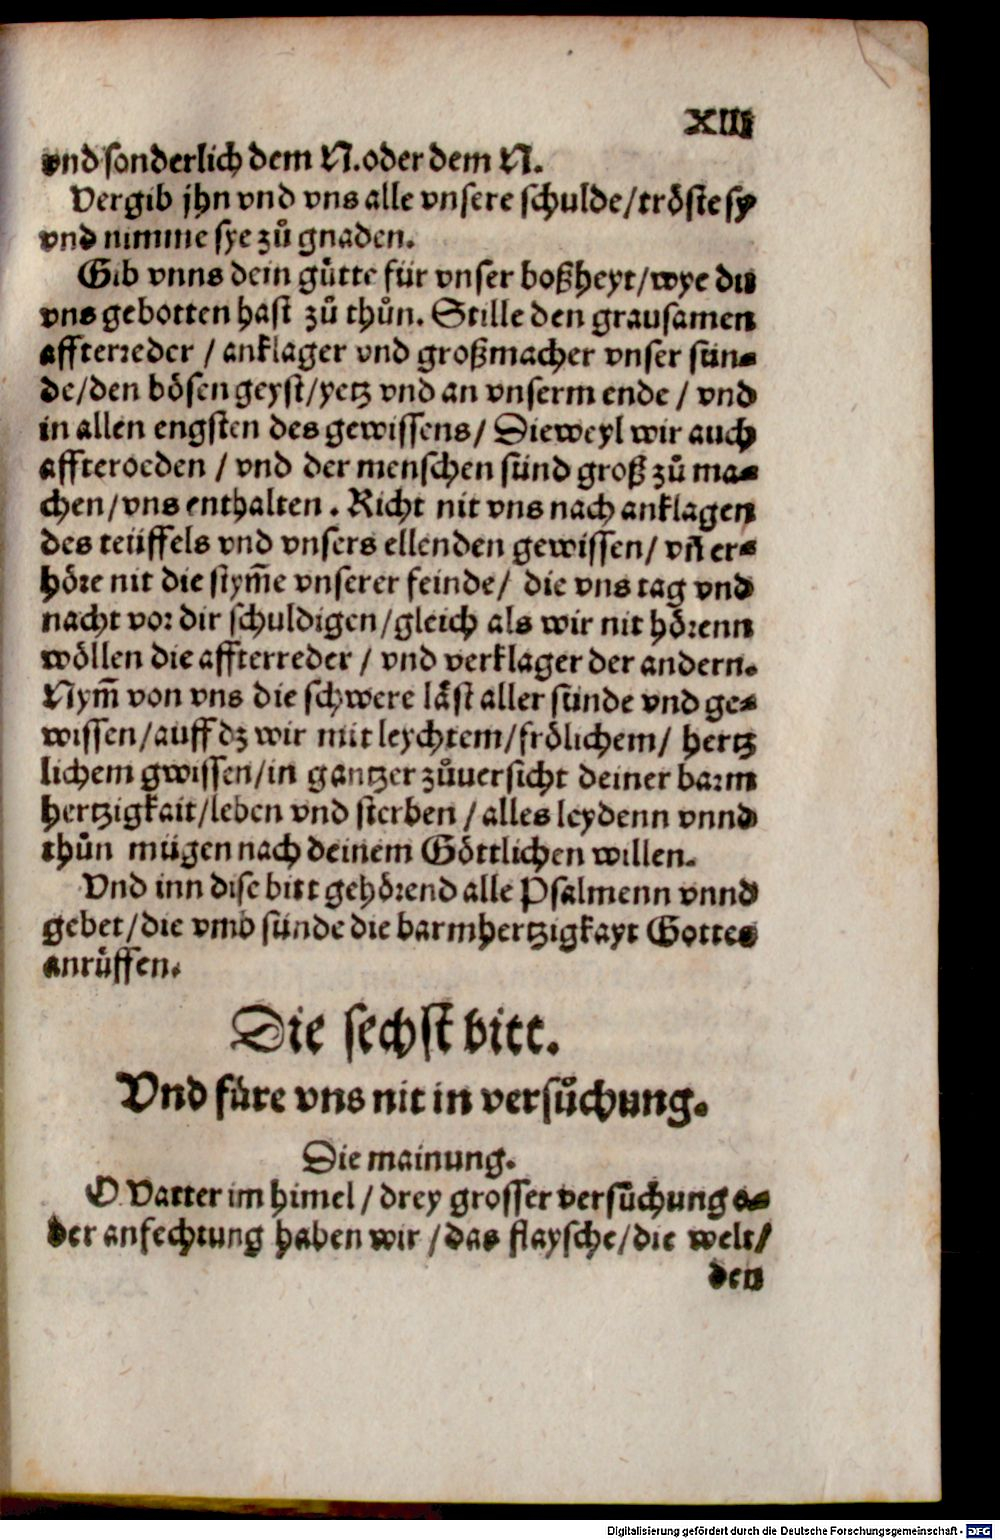 XIII
vnd sonderlich dem N. oder dem N.
Vergib jhn vnd vns alle vnsere schulde/tröste sy
vnd nimme sye zů gnaden.
Gib vnns dein gůtte für vnser boßheyt/wye du
vns gebotten hast zů thůn. Stille den grausamen
affterreder / anklager vnd großmacher vnser sün⸗
de/den bösen geyst/yetz vnd an vnserm ende / vnd
in allen engsten des gewissens/ Dieweyl wir auch
affteroeden / vnd der menschen sünd groß zů ma⸗
chen/vns enthalten. Richt nit vns nach anklagen
des teüffels vnd vnsers ellenden gewissen/ vñ er⸗
höre nit die stym̃e vnserer feinde/ die vns tag vnd
nacht vor dir schuldigen/gleich als wir nit hörenn
wöllen die affterreder / vnd verklager der andern.
Nym̃ von vns die schwere läst aller sünde vnd ge⸗
wissen/auff dz wir mit leychtem/frölichem/ hertz
lichem gwissen/in gantzer zůuersicht deiner barm
hertzigkait/leben vnd sterben / alles leydenn vnnd
thůn mügen nach deinem Göttlichen willen.
Vnd inn dise bitt gehörend alle Psalmenn vnnd
gebet/die vmb sünde die barmhertzigkayt Gottes
anrůffen.
Die sechst bitt.
Vnd füre vns nit in versůchung.
Die mainung.
O Vatter im himel / drey grosser versůchung o⸗
der anfechtung haben wir / das flaysche/die welt/
den
Digitalisierung gefördert durch die Deutsche Forschungsgemeinschaft - DFG